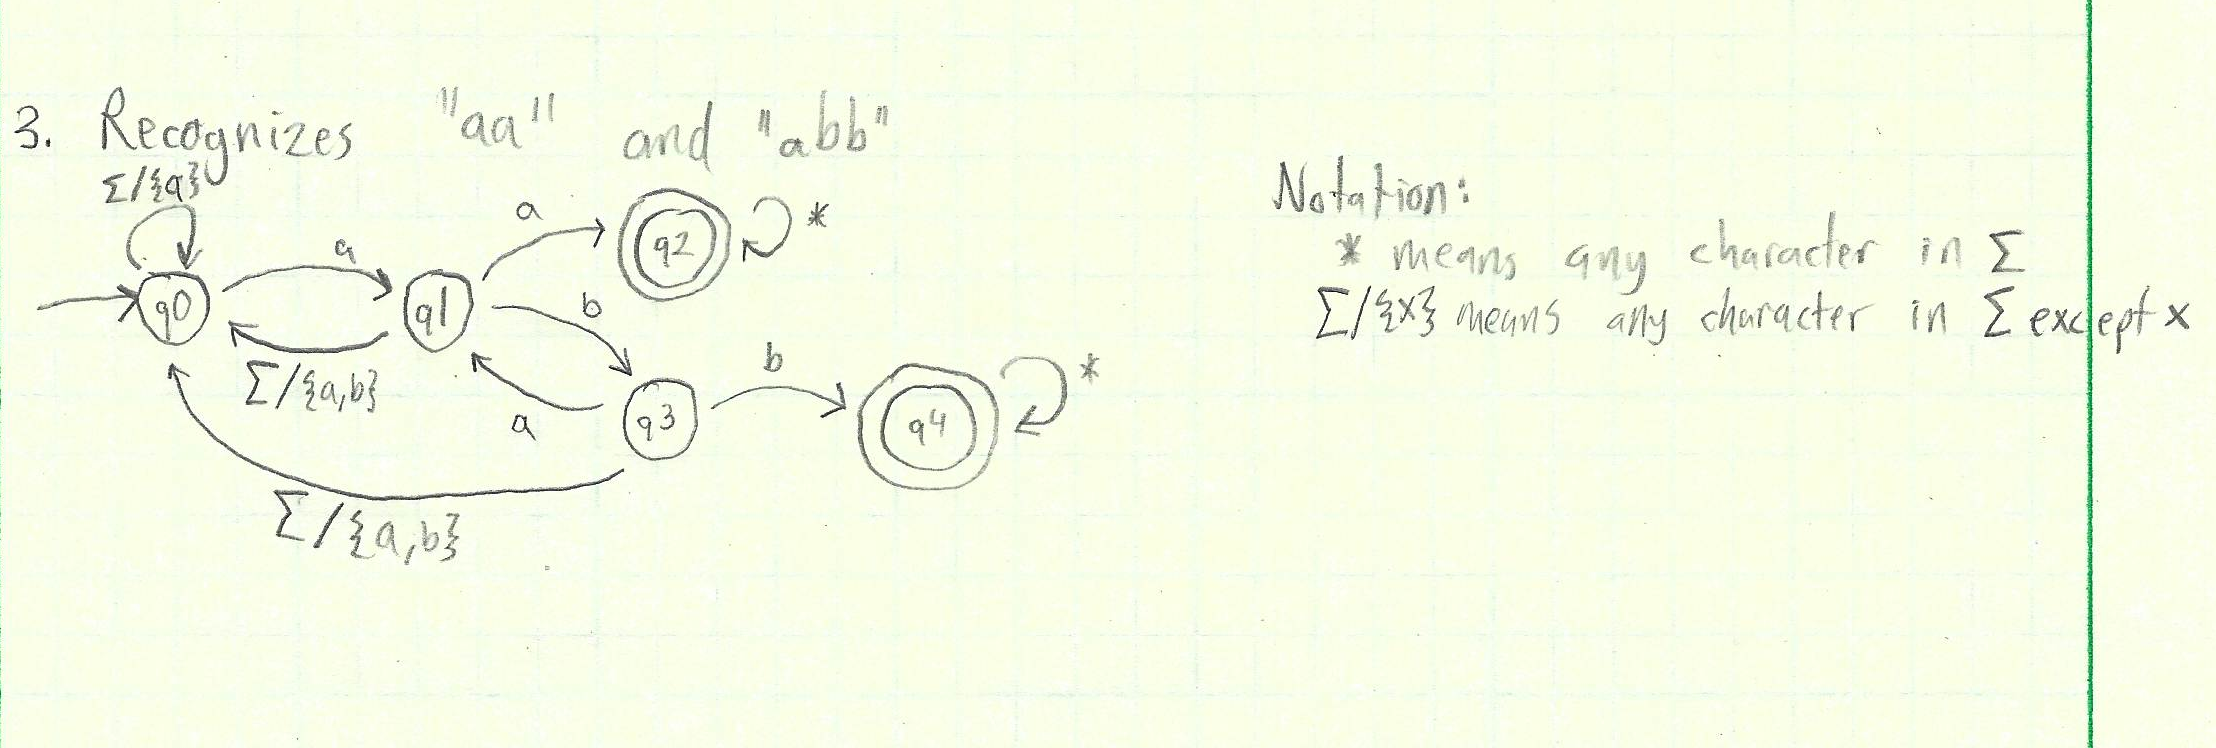 3. Recognizes "aa" and "abb"
Σ/{a}
a
a
*
q2
q0
q1
b
Σ/{a,b}
a
q3
b
q4
*
Σ/{a,b}
Notation:
* means any character in Σ
Σ/{x} means any character in Σ except x